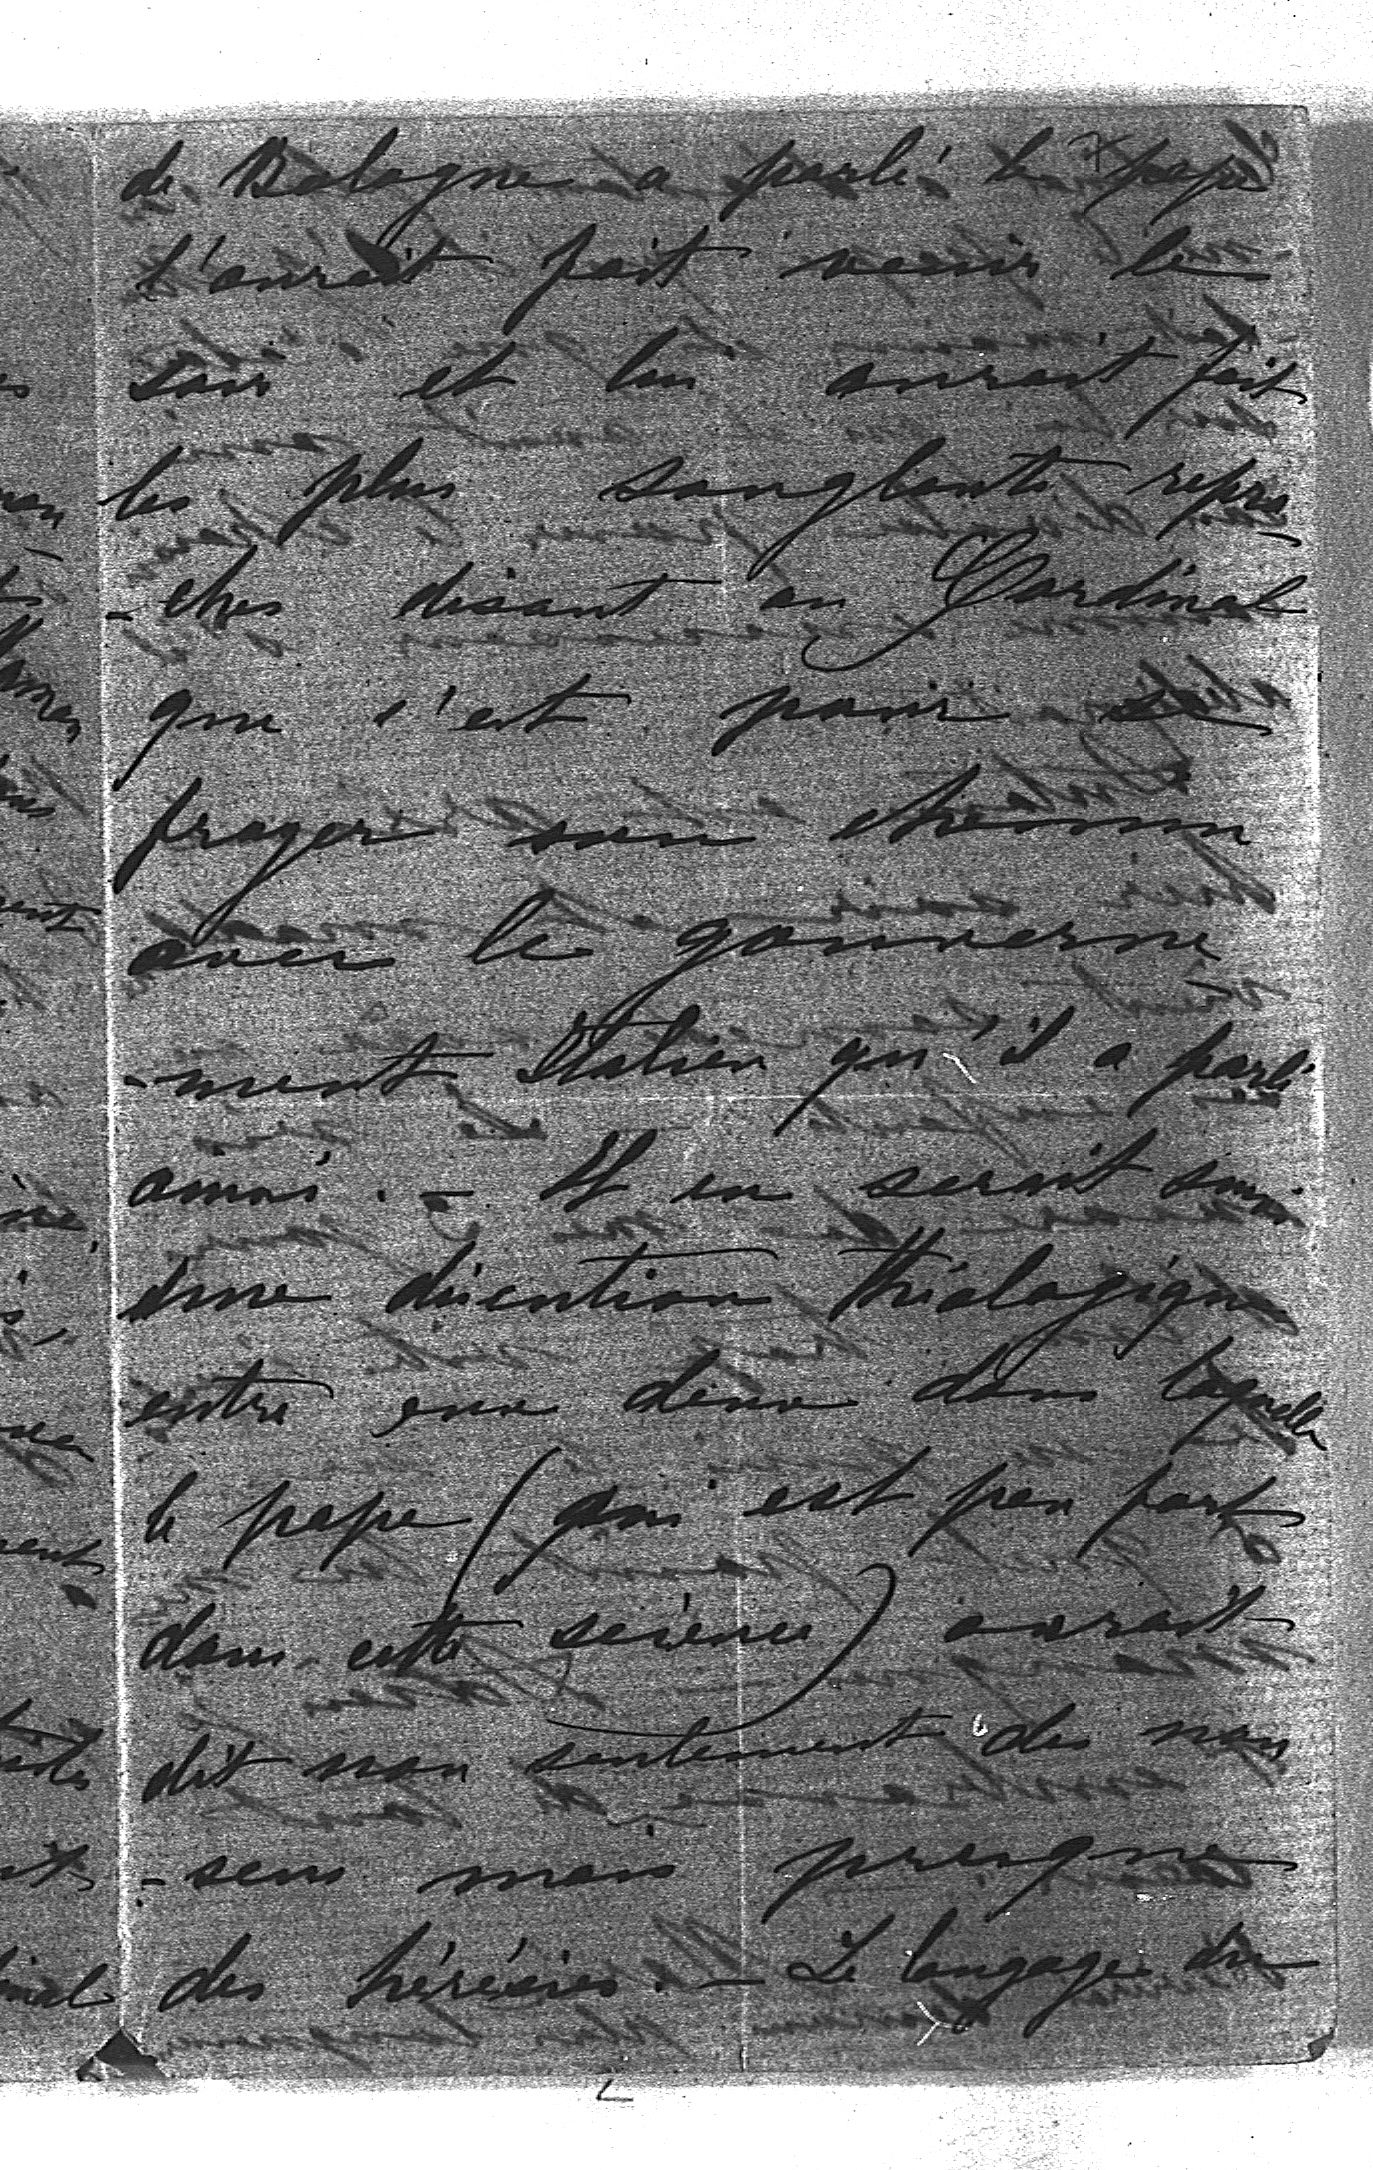 de Bologne a parlé le pape
l'aurait fait venir le
soir et lui aurait fait
les plus sanglants repro
-ches disant au Cardinal
que c'est pour se
frayer son chemin
avec le gouverne
-ment Italien qu'il a parlé
ainsi. - Il en serait suivi
une discution théologique
entre eux deux dans laquelle
le pape (qui est peu fort
dans cette science) aurait
dit non seulement des non
-sens mais presque
des hérésies. - Le langage du